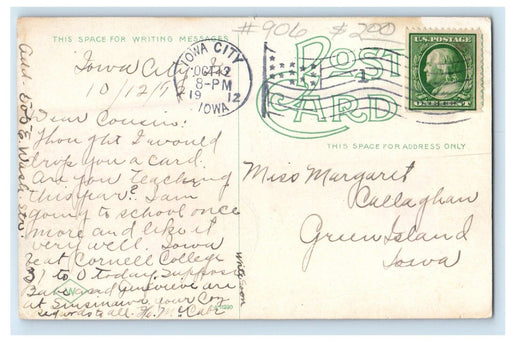 #906 $200
THIS SPACE FOR WRITING MESSAGES
POST
CARD
IOWA CITY
OCT 12
8-PM
1912
IOWA
U.S. POSTAGE
ONE CENT
THIS SPACE FOR ADDRESS ONLY
Iowa City
10/12/12
Dear Cousin:
Thought I would
drop you a card.
Are you teaching
this year? I am
going to school once
more and like it
very well. Iowa
beat Cornell College
31 to 0 today. Suppose
Babe and Genevieve are
at Sinsinawa your Con
regards to all. H. McCabe
Write soon
Miss Margaret
Callaghan
Green Island
Iowa